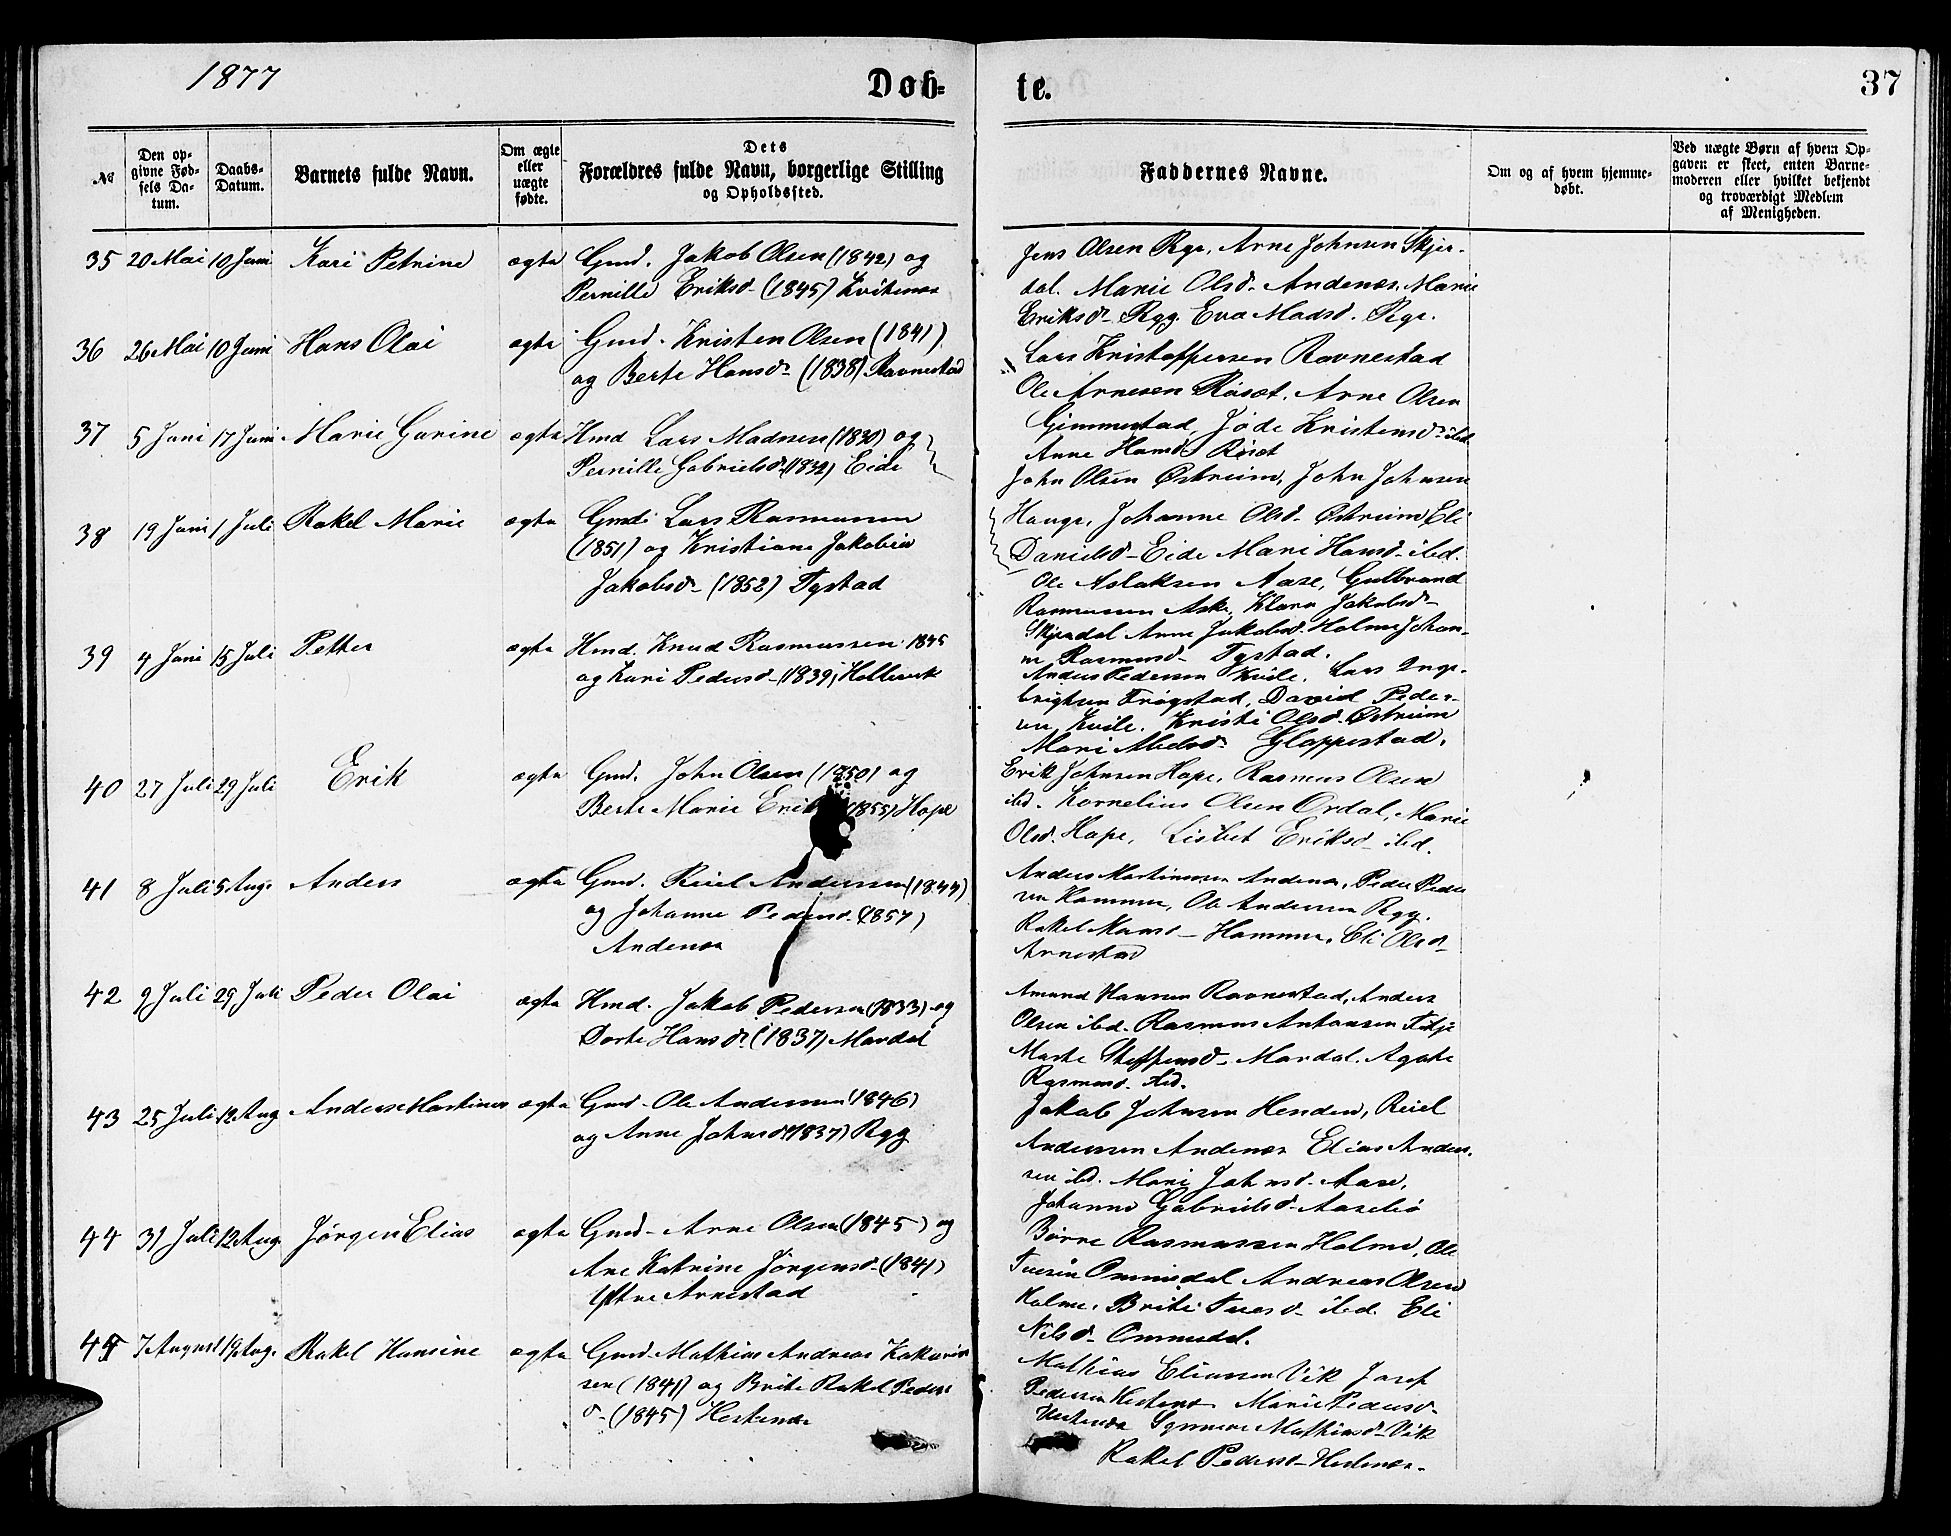 1877
Døb=
te.
37
No
Den op-
givne Fød-
sels Da-
tum.
Daabs-
Datum.
Barnets fulde Navn.
Om ægte
eller
uægte
fødte.
Dets
Forældres fulde Navn, borgerlige Stilling
og Opholdssted.
Faddernes Navne.
Om og af hvem hjemme-
døbt.
Ved uægte Børn af hvem Op-
gaven er skeet, enten Barne-
moderen eller hvilket bekjendt
og troværdigt Medlem
af Menigheden.
35 20 Mai 10 Juni Kari Petrine ægte Gmd. Jakob Olsen (1842) og
Pernille Eriksd. (1845) Kvitenes
Jens Olsen Ryg, Arne Johnsen Skjer-
dal. Marie Olsd. Andenæs, Marie
Eriksd. Rygg. Eva Madsd. Ryg.
36 26 Mai 10 Juni Hans Olai ægte Gmd. Kristen Olsen (1841)
og Berte Hansd. (1838) Ravnestad
Lars Kristoffersen Ravnestad
Ole Arnesen Røset, Arne Olsen
Gimmestad, Jøde Kristensd. ibd
Anne Hansd. Røset
37 5 Juni 17 Juni Marie Gurine ægte Hmd Lars Madssen (1830) og
Pernille Gabrielsd. (1832) Eide
John Olsen Østreim, John Johnsen
Hauge, Johanne Olsd. Østreim Eli
Danielsd. Eide Mari Hansd. ibd.
38 19 Juni 1 Juli Rakel Marie ægte Gmd. Lars Rasmussen
(1851) og Kristiane Jakobine
Jakobsd. (1852) Tystad
Ole Aslaksen Aase, Gulbrand
Rasmussen Aske, Klara Jakobsd.
Skjerdal Anne Jakobsd. Holme Johan-
ne Rasmusd. Tystad.
39 4 Juni 15 Juli Petter ægte Hmd. Knud Rasmussen 1845
og Kari Pedersd. (1839)
Anders Pedersen Kvile, Lars Inge-
brigtsen Frøystad, David Peder-
sen Kvile. Kristi Olsd. Østreim
Mari Abelsd. Gloppestad.
40 27 Juli 29 Juli Erik ægte Gmd. John Olsen (1850) og
Berte Marie (1855) Hope
Erik Johnsen Hope, Rasmus Olsen
ibd. Kornelius Olsen Ordal, Marie
Olsd. Hope, Lisbet Eriksd. ibd.
41 8 Juli 5 Aug. Anders ægte Gmd. Reiel Anderssen (1844)
og Johanne Pedersd. (1857)
Andenæs
Anders Martinussen Andenæs, Peder Peder
sen Hammer, Ole Andersen Rygg.
Rakel Hammer, Eli Olsd.
Arnestad
42 9 Juli 29 Juli Peder Olai ægte Hmd. Jakob Pedersen (1833) og
Dorte Hansd. (1837) Mardal
Amund Hansen Ravnestad, Anders
Olsen ibd. Rasmus Antonsen
Marte Steffensd. Mardal. Agate
Rasmusd. ibd.
43 25 Juli 12 Aug Anders Martinus ægte Gmd. Ole Anderssen (1846)
og Anne Johnsd. (1837) Rygg
Jakob Johnsen Henden, Reiel
Anderssen Andenæs Elias Anders-
sen ibd. Mari Johnsd. Aase,
Johanne Gabrielsd. Aasebø
44 31 Juli 12 Aug. Jørgen Elias ægte Gmd. Arne Olsen (1845) og
Ane Katrine Jørgensd. (1841)
Ytre Arnestad
Børre Rasmussen Holme, Ole
Ommedal Andreas Olsen
Holme, Brite ibd. Eli
Nilsd. Ommedal.
45 7 August 19 Aug. Rakel Hansine ægte Gmd. Mathias Andreas Zakarias
sen (1841) og Brite Rakel Peders
d. (1845) Hestenæs
Mathias Eliassen Vik Josef
Pedersen Hestenæs Marie Pedersd.
Hestenæs Synneve Mathiasd. Vik
Rakel Pedersd. Hestenæs.